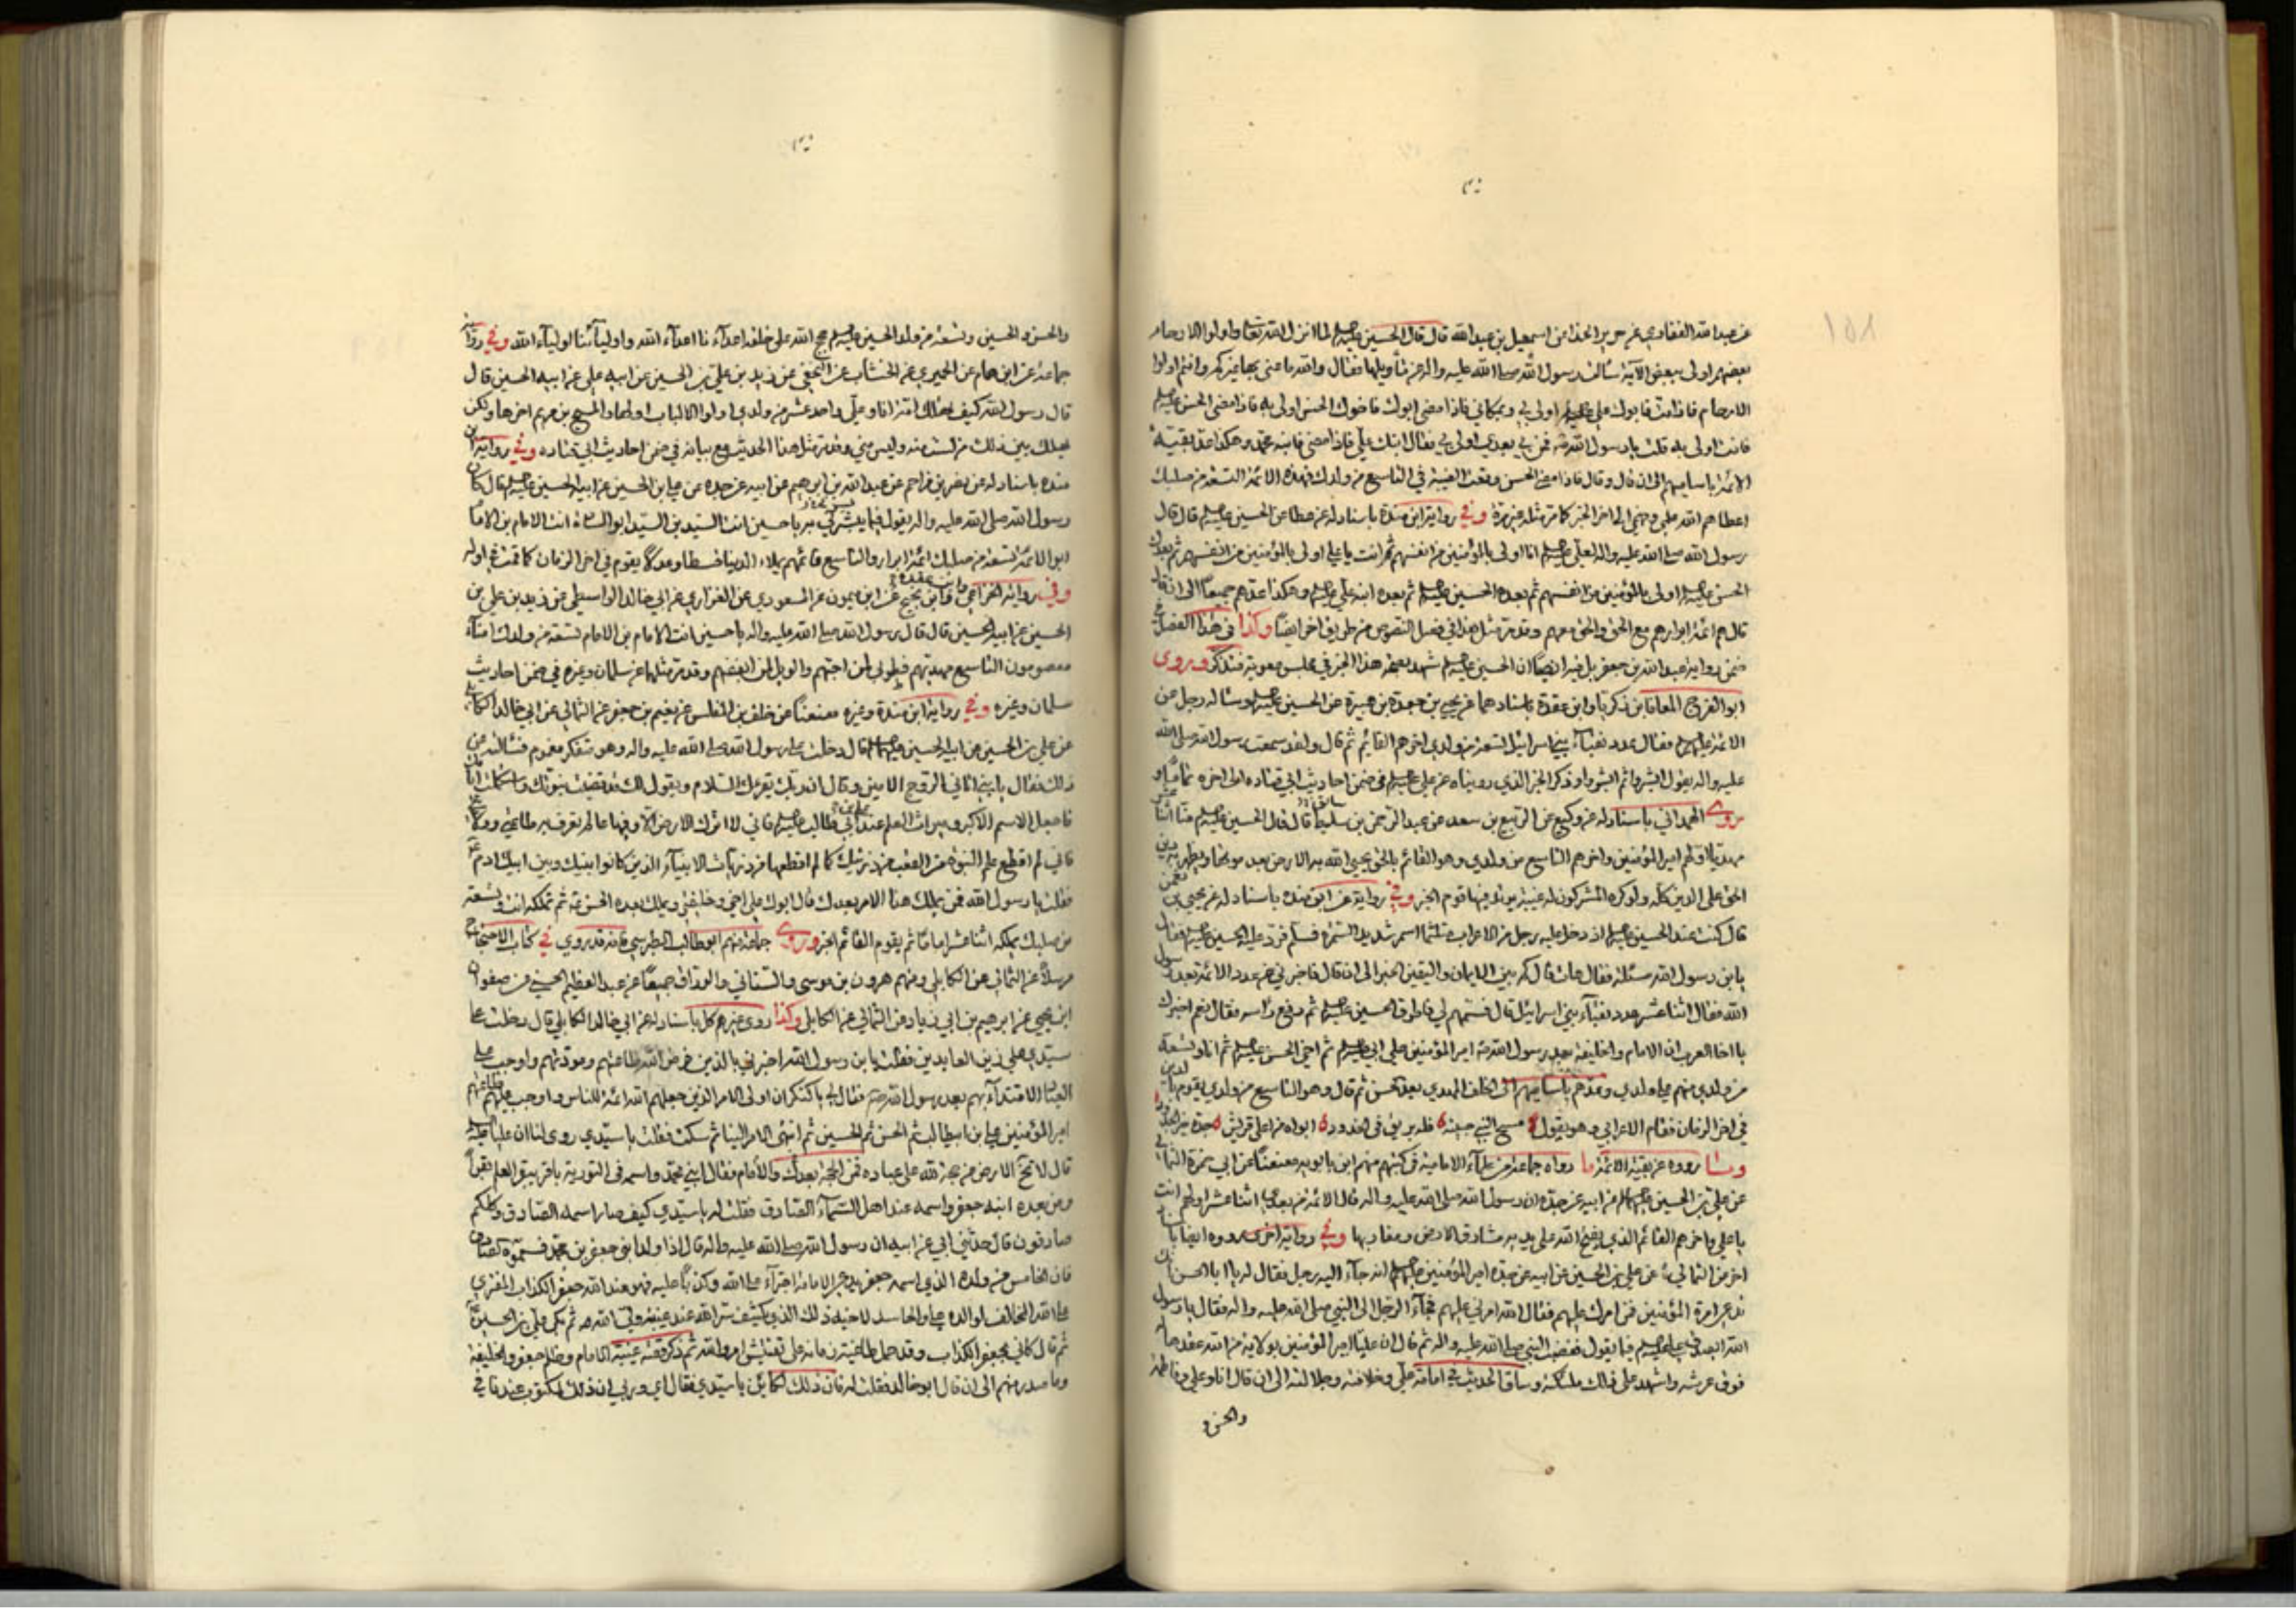 عن عبد الله الغفاري عن حريز الحذاء عن اسمعيل بن عبد الله قال قال الحسين لما انزل الله تعالى واولوا الارحام
بعضهم اولى ببعض الآية سألت رسول الله صلى الله عليه واله عن تأويلها فقال والله ما عنى بها غيركم وانتم اولوا
الارحام فاذا مت فابوك علي اولى بي وبمكاني فاذا مضى ابوك فاخوك الحسن اولى به فاذا مضى الحسن
فانت اولى به قلت يا رسول الله فمن بي بعدي اولى بي فقال ابنك علي فاذا مضى فابنه محمد وهكذا عد بقية
الائمة باساميهم الى ان قال وقال فاذا مضى الحسن وقعت الغيبة في التاسع من ولدك فهذه الائمة التسعة من صلبك
اعطاهم الله علمي وفهمي الى اخر الخبر كما مر مثله غير مرة وفي رواية ابن مندة باسناد له عن عطا عن الحسين قال قال
رسول الله صلى الله عليه واله لعلي انا اولى بالمؤمنين من انفسهم ثم انت يا علي اولى بالمؤمنين من انفسهم ثم بعدك
الحسن اولى بالمؤمنين من انفسهم ثم بعده الحسين ثم بعده ابنه علي وهكذا عدهم جميعا الى ان قال
قال هم ائمة ابرار هم مع الحق والحق معهم وقد مر مثل هذا في فصل النصوص من طريق اخر ايضا وكذا في هذا الفصل
ضمن رواية عبد الله بن جعفر بل فيه ايضا ان الحسين شهد بصحة هذا الخبر في مجلس معوية فتذكر وروى
ابو الفرج المعافا بن زكريا وابن عقدة باسنادهما عن يحيى بن جعدة بن هبيرة عن الحسين وسأله رجل عن
الائمة فقال عدد نقباء بني اسرائيل تسعة من ولدي اخرهم القايم ثم قال ولقد سمعت رسول الله صلى الله
عليه واله يقول ابشروا ثم ابشروا وذكر الخبر الذي رويناه عن علي في ضمن احاديث ابي قتادة الى اخره تماما و
روى الهمداني باسناد له عن وكيع عن الربيع بن سعد عن عبد الرحمن بن سليط قال قال الحسين منا اثنا عشر
مهديا اولهم امير المؤمنين واخرهم التاسع من ولدي وهو القائم بالحق يحيي الله به الارض بعد موتها ويظهر به دين
الحق على الدين كله ولو كره المشركون له غيبة يرتد فيها قوم الخبر وفي رواية عن ابن مندة باسناد له عن يحيى بن يعمن
قال كنت عند الحسين اذ دخل عليه رجل من الاعراب متلثما اسمر شديد السمرة فسلم فرد عليه الحسين فقال
يا بن رسول الله مسئلة فقال هات قال كم بين الايمان واليقين الخبر الى ان قال فاخبرني عن عدد الائمة بعد رسول
الله فقال اثنا عشر عدد نقباء بني اسرائيل قال فسمهم لي فاطرق الحسين ثم رفع رأسه فقال نعم اخبرك
يا اخا العرب ان الامام والخليفة بعد رسول الله امير المؤمنين علي ابي ثم اخي الحسن ثم انا وتسعة
من ولدي منهم علي ولدي وعدهم باساميهم الى الخلف المهدي بعد الحسن ثم قال وهو التاسع من ولدي يقوم بالدين
في اخر الزمان فقام الاعرابي وهو يقول مسح النبي جبينه فله بريق في الخدود ابواه من اعلى قريش جده خير الجدود
ومما رووه عن بقية الائمة ما رواه جماعة من علماء الامامية في كتبهم منهم ابن بابويه معنعنا عن ابي حمزة الثمالي
عن علي بن الحسين عن ابيه عن جده ان رسول الله صلى الله عليه واله قال الائمة من بعدي اثنا عشر اولهم انت
يا علي واخرهم القائم الذي يفتح الله على يديه مشارق الارض ومغاربها وفي رواية اخرى رووه ايضا باسناد
اخر عن الثمالي عن علي بن الحسين عن ابيه عن جده امير المؤمنين انه جاء اليه رجل فقال له يا ابا الحسن انك
تدعى امرة المؤمنين فمن امرك عليهم فقال الله امرني عليهم فجاء الرجل الى النبي صلى الله عليه واله فقال يا رسول
الله ايصدق علي فيما يقول فغضب النبي صلى الله عليه واله ثم قال ان عليا امير المؤمنين بولاية من الله عقدها له
فوق عرشه واشهد على ذلك ملئكته وساق الحديث في امامة علي وخلافته وجلالته الى ان قال انا وعلي وفاطمة
والحسن و
والحسن والحسين وتسعة من ولد الحسين حجج الله على خلقه اعداءنا اعداء الله واولياءنا اولياء الله وفي رواية
جماعة عن ابن همام عن الحميري عن الخشاب عن النخعي عن زيد بن علي بن الحسين عن ابيه علي عن ابيه الحسين قال
قال رسول الله كيف تهلك امة انا وعلي واحد عشر من ولدي اولوا الالباب اولها والمسيح بن مريم اخرها ولكن
يهلك بين ذلك من لست منه وليس مني وقد مر مثل هذا الحديث مع بيانه في ضمن احاديث ابي قتادة وفي رواية ابن
مندة باسناد له عن نصر بن مزاحم عن عبد الله بن ابرهيم عن ابيه عن جده عن علي بن الحسين عن ابيه الحسين قال كان
رسول الله صلى الله عليه واله يقول فيما يبشرني به يا حسين انت السيد بن السيد ابو السادة انت الامام بن الامام
ابو الائمة التسعة من صلبك ائمة ابرار والتاسع قائمهم يملاء الدنيا قسطا وعدلا يقوم في اخر الزمان كما قمت في اوله
وفي رواية الخزاعي وابن عقدة وابن نجيح عن ابن ميمون عن المسعودي عن الفزاري عن ابي خالد الواسطي عن زيد بن علي بن
الحسين عن ابيه الحسين قال قال رسول الله صلى الله عليه واله يا حسين انت الامام بن الامام تسعة من ولدك امناء
معصومون التاسع مهديهم فطوبى لمن احبهم والويل لمن ابغضهم وقد مر مثلها عن سلمان وغيره في ضمن احاديث
سلمان وغيره وفي رواية ابن مندة وغيره معنعنا عن خلف بن المفلس عن نعيم بن جعفر عن الثمالي عن ابي خالد الكابلي
عن علي بن الحسين عن ابيه الحسين قال دخلت على رسول الله صلى الله عليه واله وهو متفكر مغموم فسألته عن
ذلك فقال يا بني اتاني الروح الامين وقال ان ربك يقرئك السلام ويقول لك قد قضيت نبوتك واستكملت ايامك
فاجعل الاسم الاكبر وميراث العلم عند علي بن ابي طالب فاني لا اترك الارض الا وفيها عالم يعرف به طاعتي وولايتي
فاني لم اقطع علم النبوة من العقب من ذريتك كما لم اقطعها من ذريات الانبياء الذين كانوا بينك وبين ابيك ادم
فقلت يا رسول الله فمن يملك هذا الامر بعدك قال ابوك علي اخي وخليفتي ويملك بعده الحسن ثم تملكه انت وتسعة
من صلبك يملكه اثنا عشر اماما ثم يقوم القائم الخبر وروى جماعة منهم ابو طالب الطبرسي فانه قد روي في كتاب الاحتجاج
مرسلا عن الثمالي عن الكابلي ومنهم هرون بن موسى والسناني والوراق جميعا عن عبد العظيم الحسني عن صفوان
ابن يحيى عن ابرهيم بن ابي زياد عن الثمالي عن الكابلي وكذا روى غيرهم كل باسناد له عن ابي خالد الكابلي قال دخلت على
سيدي علي زين العابدين فقلت يا بن رسول الله اخبرني بالذين فرض الله طاعتهم ومودتهم واوجب على
العباد الاقتداء بهم بعد رسول الله فقال لي يا كنكر ان اولى الامر الذين جعلهم الله ائمة للناس واوجب عليهم طاعتهم
امير المؤمنين علي بن ابيطالب ثم الحسن ثم الحسين ثم انتهى الامر الينا ثم سكت فقلت يا سيدي روى لنا ان عليا
قال لا تخلو الارض من حجة لله على عباده فمن الحجة بعدك والامام فقال ابني محمد واسمه في التورية باقر يبقر العلم بقرا
ومن بعده ابنه جعفر واسمه عند اهل السماء الصادق فقلت له يا سيدي كيف صار اسمه الصادق وكلكم
صادقون قال حدثني ابي عن ابيه ان رسول الله صلى الله عليه واله قال اذا ولد ابني جعفر بن محمد فسموه الصادق
فان الخامس من ولده الذي اسمه جعفر يدعي الامامة اجتراء على الله وكذبا عليه فهو عند الله جعفر الكذاب المفتري
على الله المخالف لوالده والحاسد لاخيه ذلك الذي يكشف سر الله عند غيبة ولي الله ثم بكى علي بن الحسين
ثم قال كاني بجعفر الكذاب وقد حمل طاغية زمانه على تفتيش امر ولي الله ثم ذكر قصة غيبة الامام وظلم جعفر والخليفة
وما صدر منهم الى ان قال ابو خالد فقلت له فان ذلك لكائن يا سيدي فقال اي وربي ان ذلك لمكتوب عندنا في